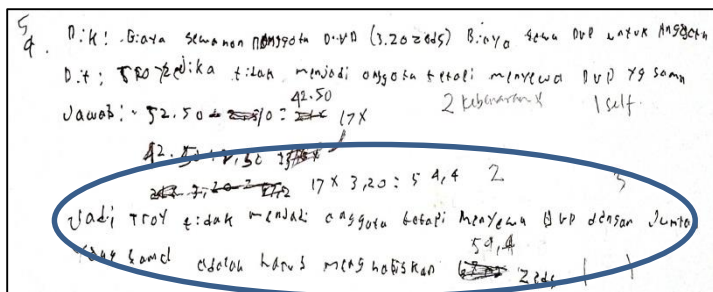 5
4. Dik: Biaya sewa non anggota DVD (3.20 zeds) Biaya sewa DVD untuk Anggota
Dit: TROY Jika tidak menjadi anggota tetapi menyewa DVD yg sama
42.50
Jawab: 52.50 10 = 17 x 2 kebenaran 1 self.
42.50 : 2,50
17 x 3,20 = 54,4 2 3
Jadi TROY tidak menjadi anggota tetapi menyewa DVD dengan Jumlah
54,4
yang sama adalah harus menghabiskan Zeds 1 1